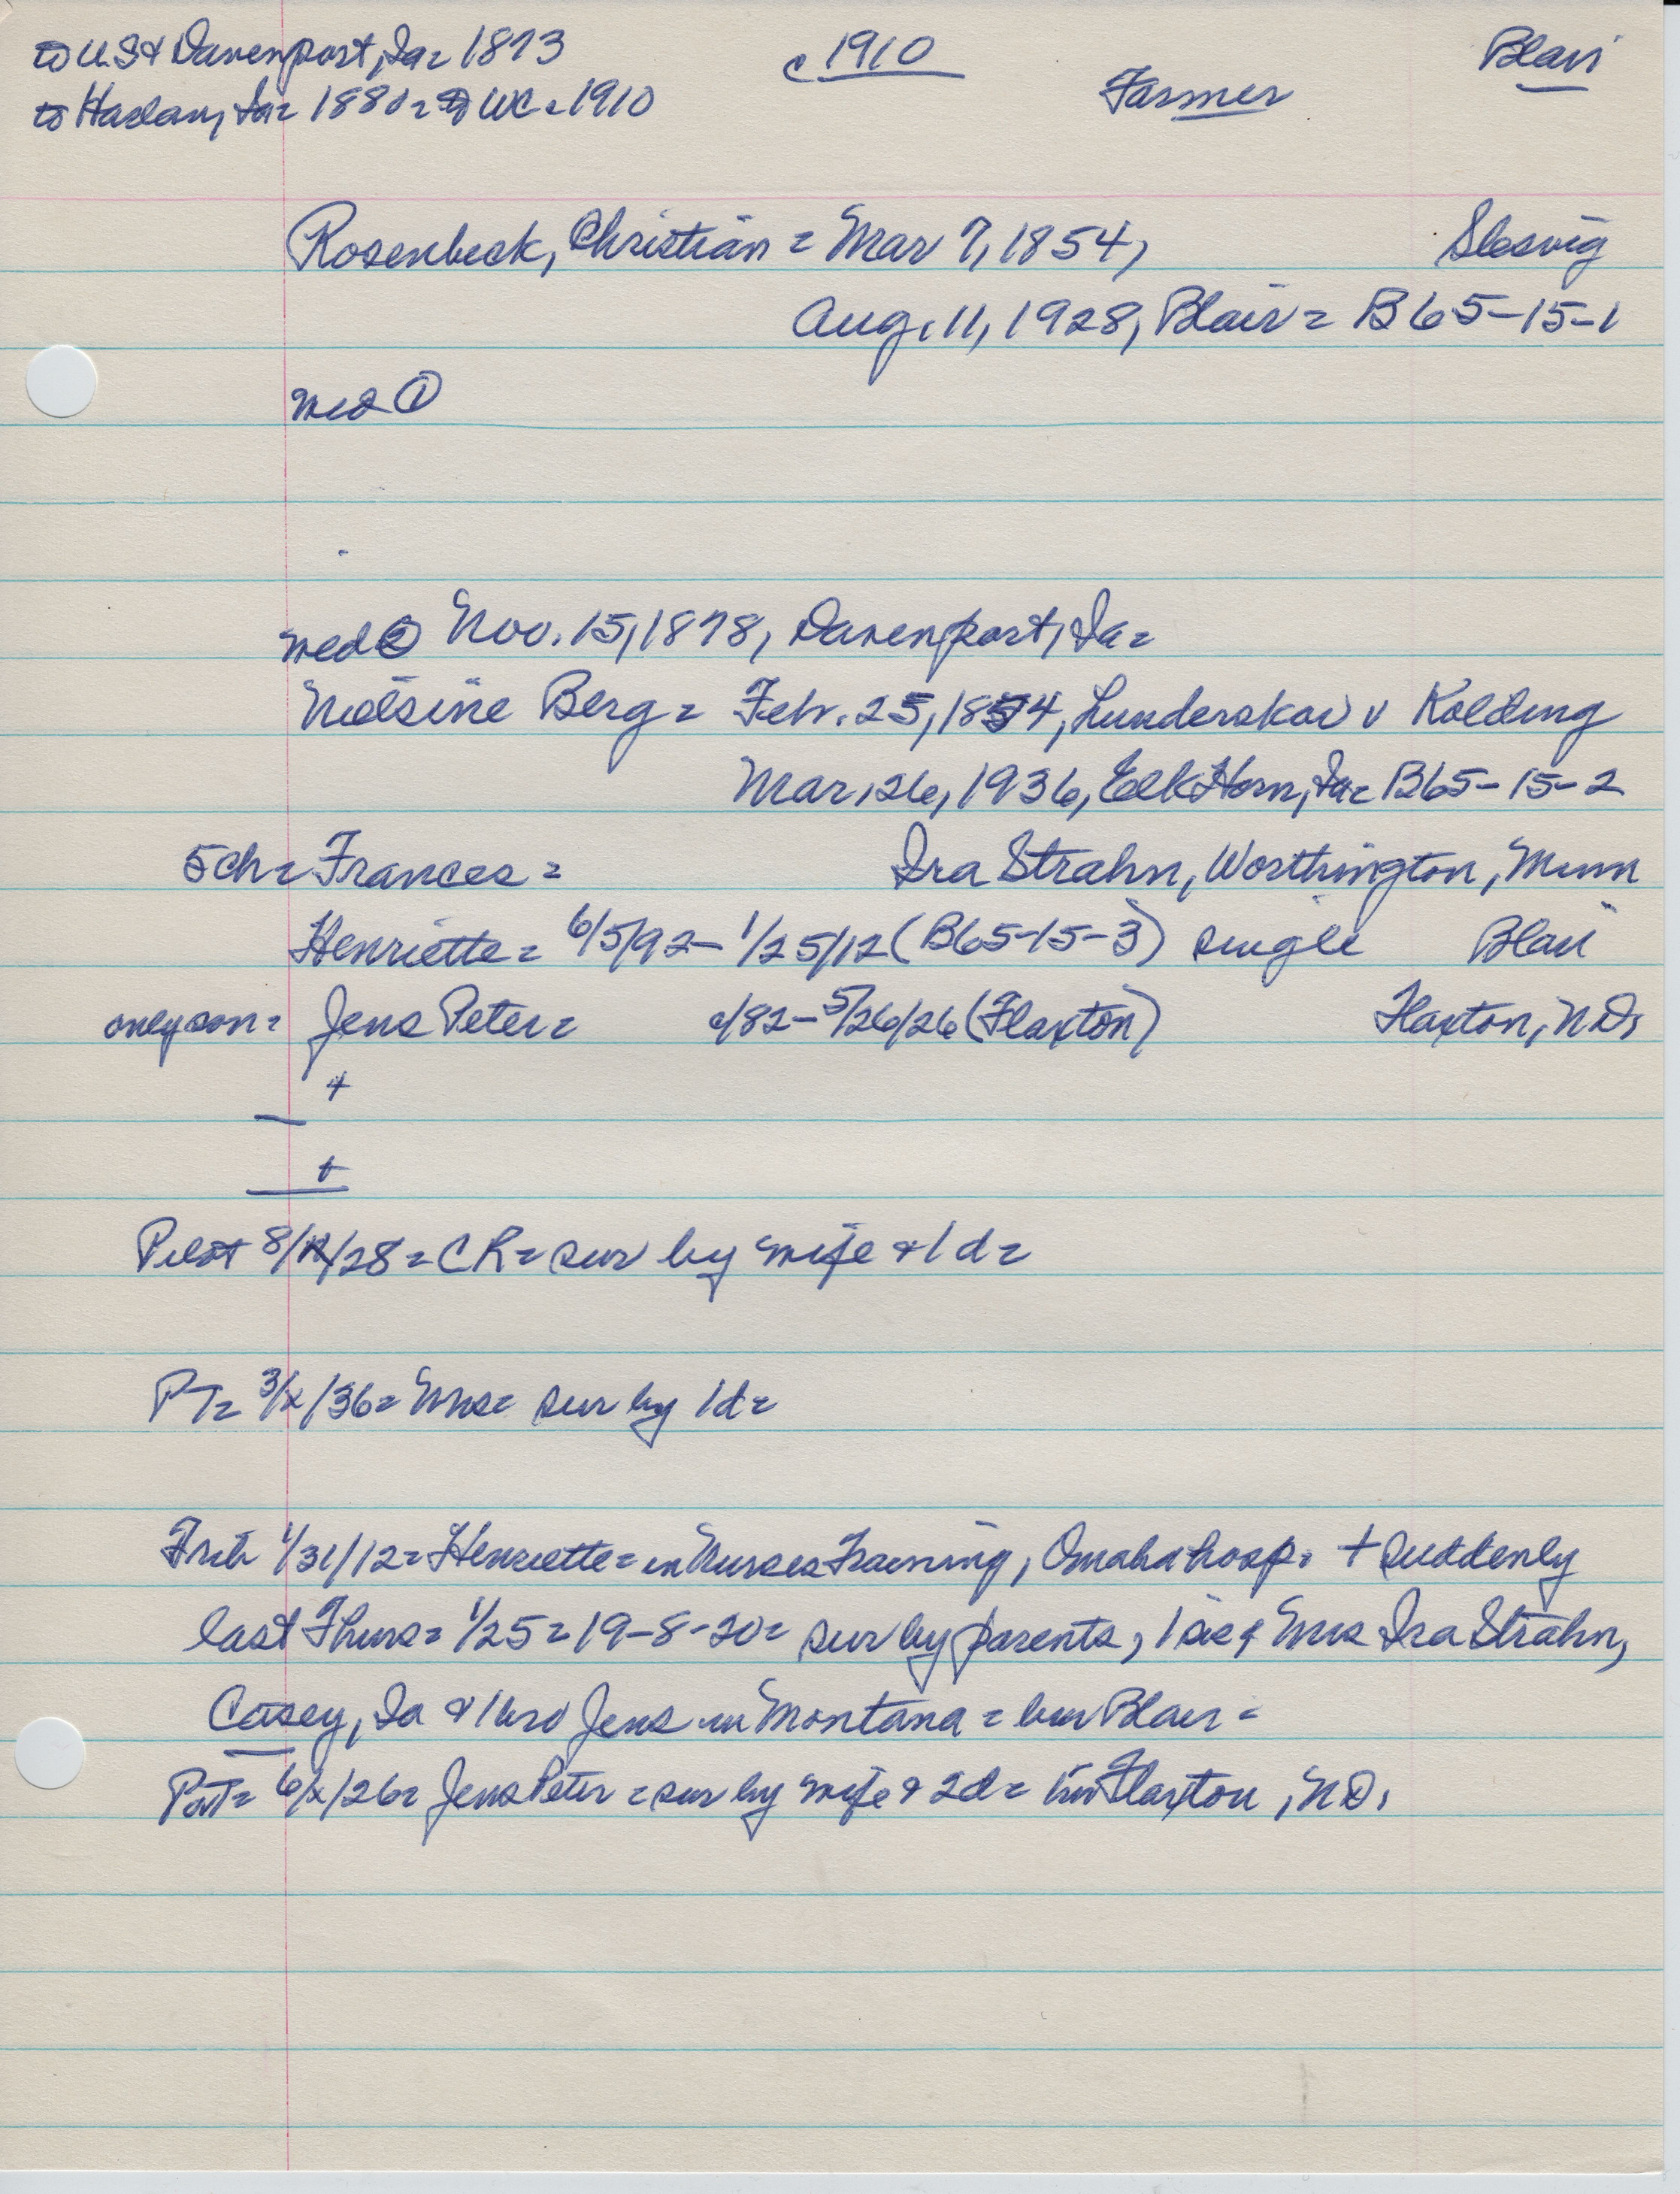 to U.S & Davenport, Ia = 1873
c 1910
Blair
to Harlan, Ia = 1880 = to WC c 1910
Farmer
Rosenbeck, Christian = Mar 7, 1854, Slesvig
Aug. 11, 1928, Blair = B65-15-1
med ①
med ② Nov. 15, 1878, Davenport, Ia =
Nielsine Berg = Febr. 25, 1854, Lunderskov v Kolding
Mar. 26, 1936, Elk Horn, Ia = B65-15-2
5 ch = Frances = Ira Strahn, Worthington, Minn
Henriette = 6/5/92 - 1/25/12 (B65-15-3) single Blair
only son = Jens Peter = c/82 - 5/26/26 (Flaxton) Flaxton, N D.
+
+
Pilot 8/ /28 = CR = sur by wife & 1 d =
PT = 3/x/36 = Mrs = sur by 1 d =
Trib 1/31/12 = Henriette = in Nurses Training, Omaha hosp. + suddenly
last Thurs = 1/25 = 19-8-20 = sur by parents, 1 sis, Mrs Ira Strahn,
Casey, Ia & 1 bro Jens in Montana = bur Blair =
= 6/x/26 = Jens Peter = sur by wife & 2 d = Flaxton, N D.